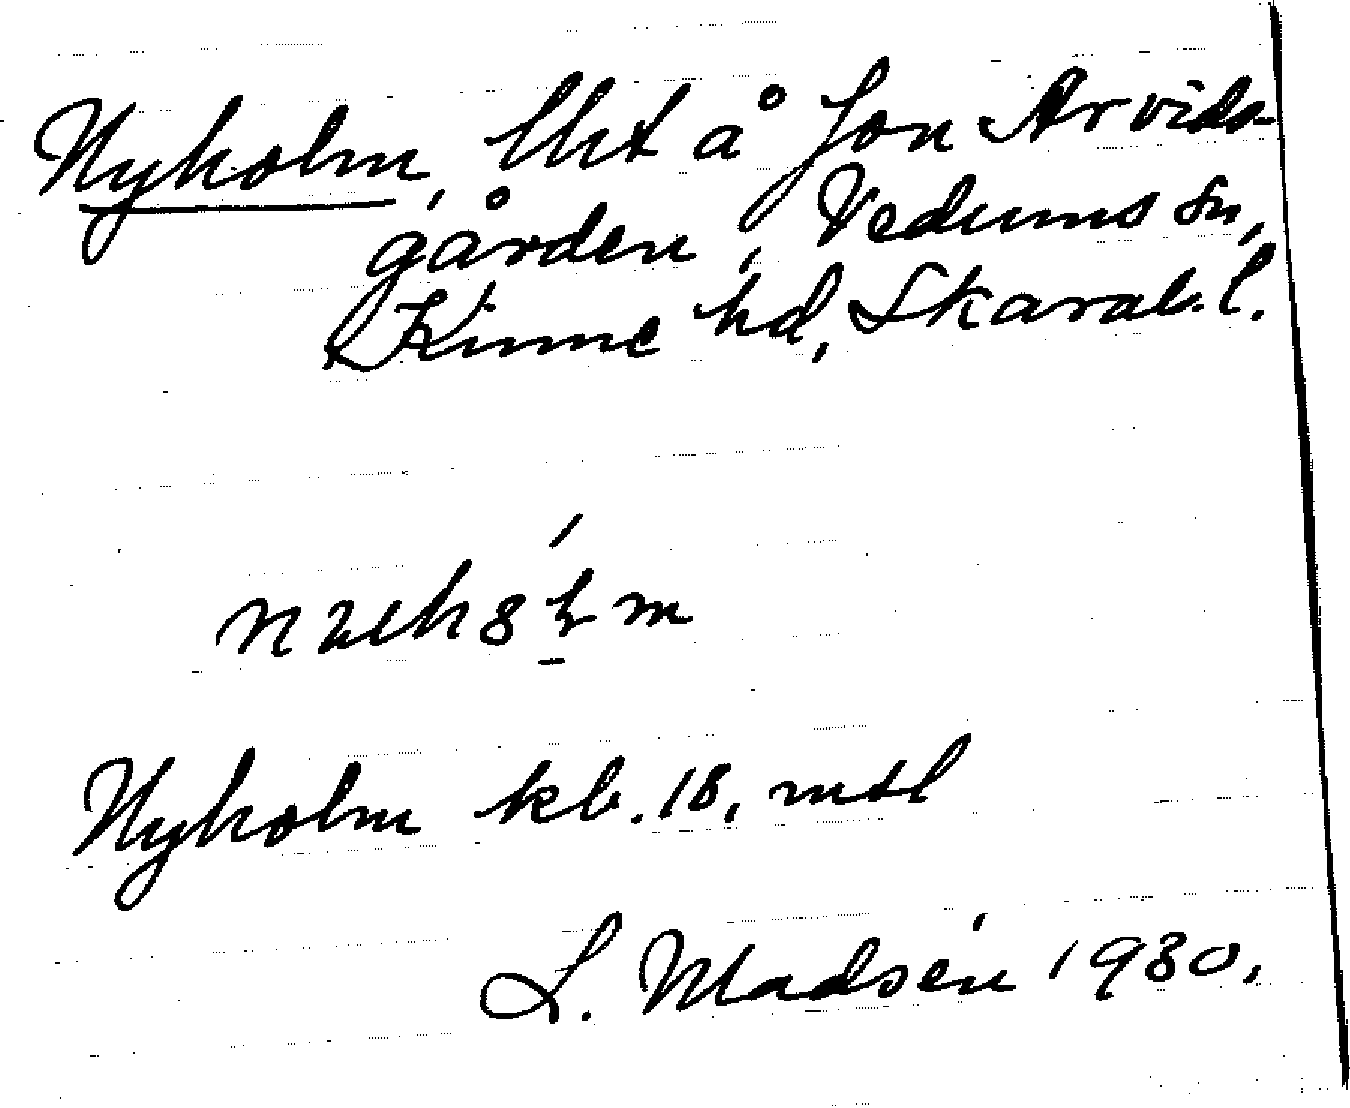 Nyholm, lht å Jon Arvids-
gården, Vedums sn,
Kinne hd, Skarab. l.
Nyholm kb. 18, mtl
L. Madsén 1930.